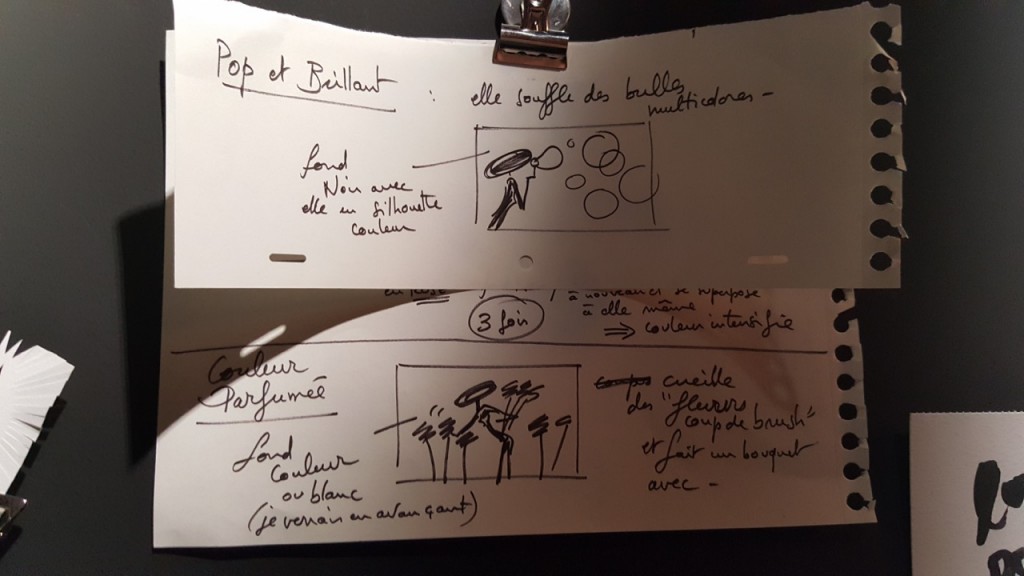 Pop et Brillant : elle souffle des bulles
multicolores -
fond
Noir avec
elle en silhouette
couleur
en
à nouveau et se superpose
à elle même
3 fois
⇒ couleur intensifiée
Couleur
Parfumée
cueille
des "fleurs
coup de brush"
et fait un bouquet
avec -
fond
couleur
ou blanc
(je verrai en avançant)